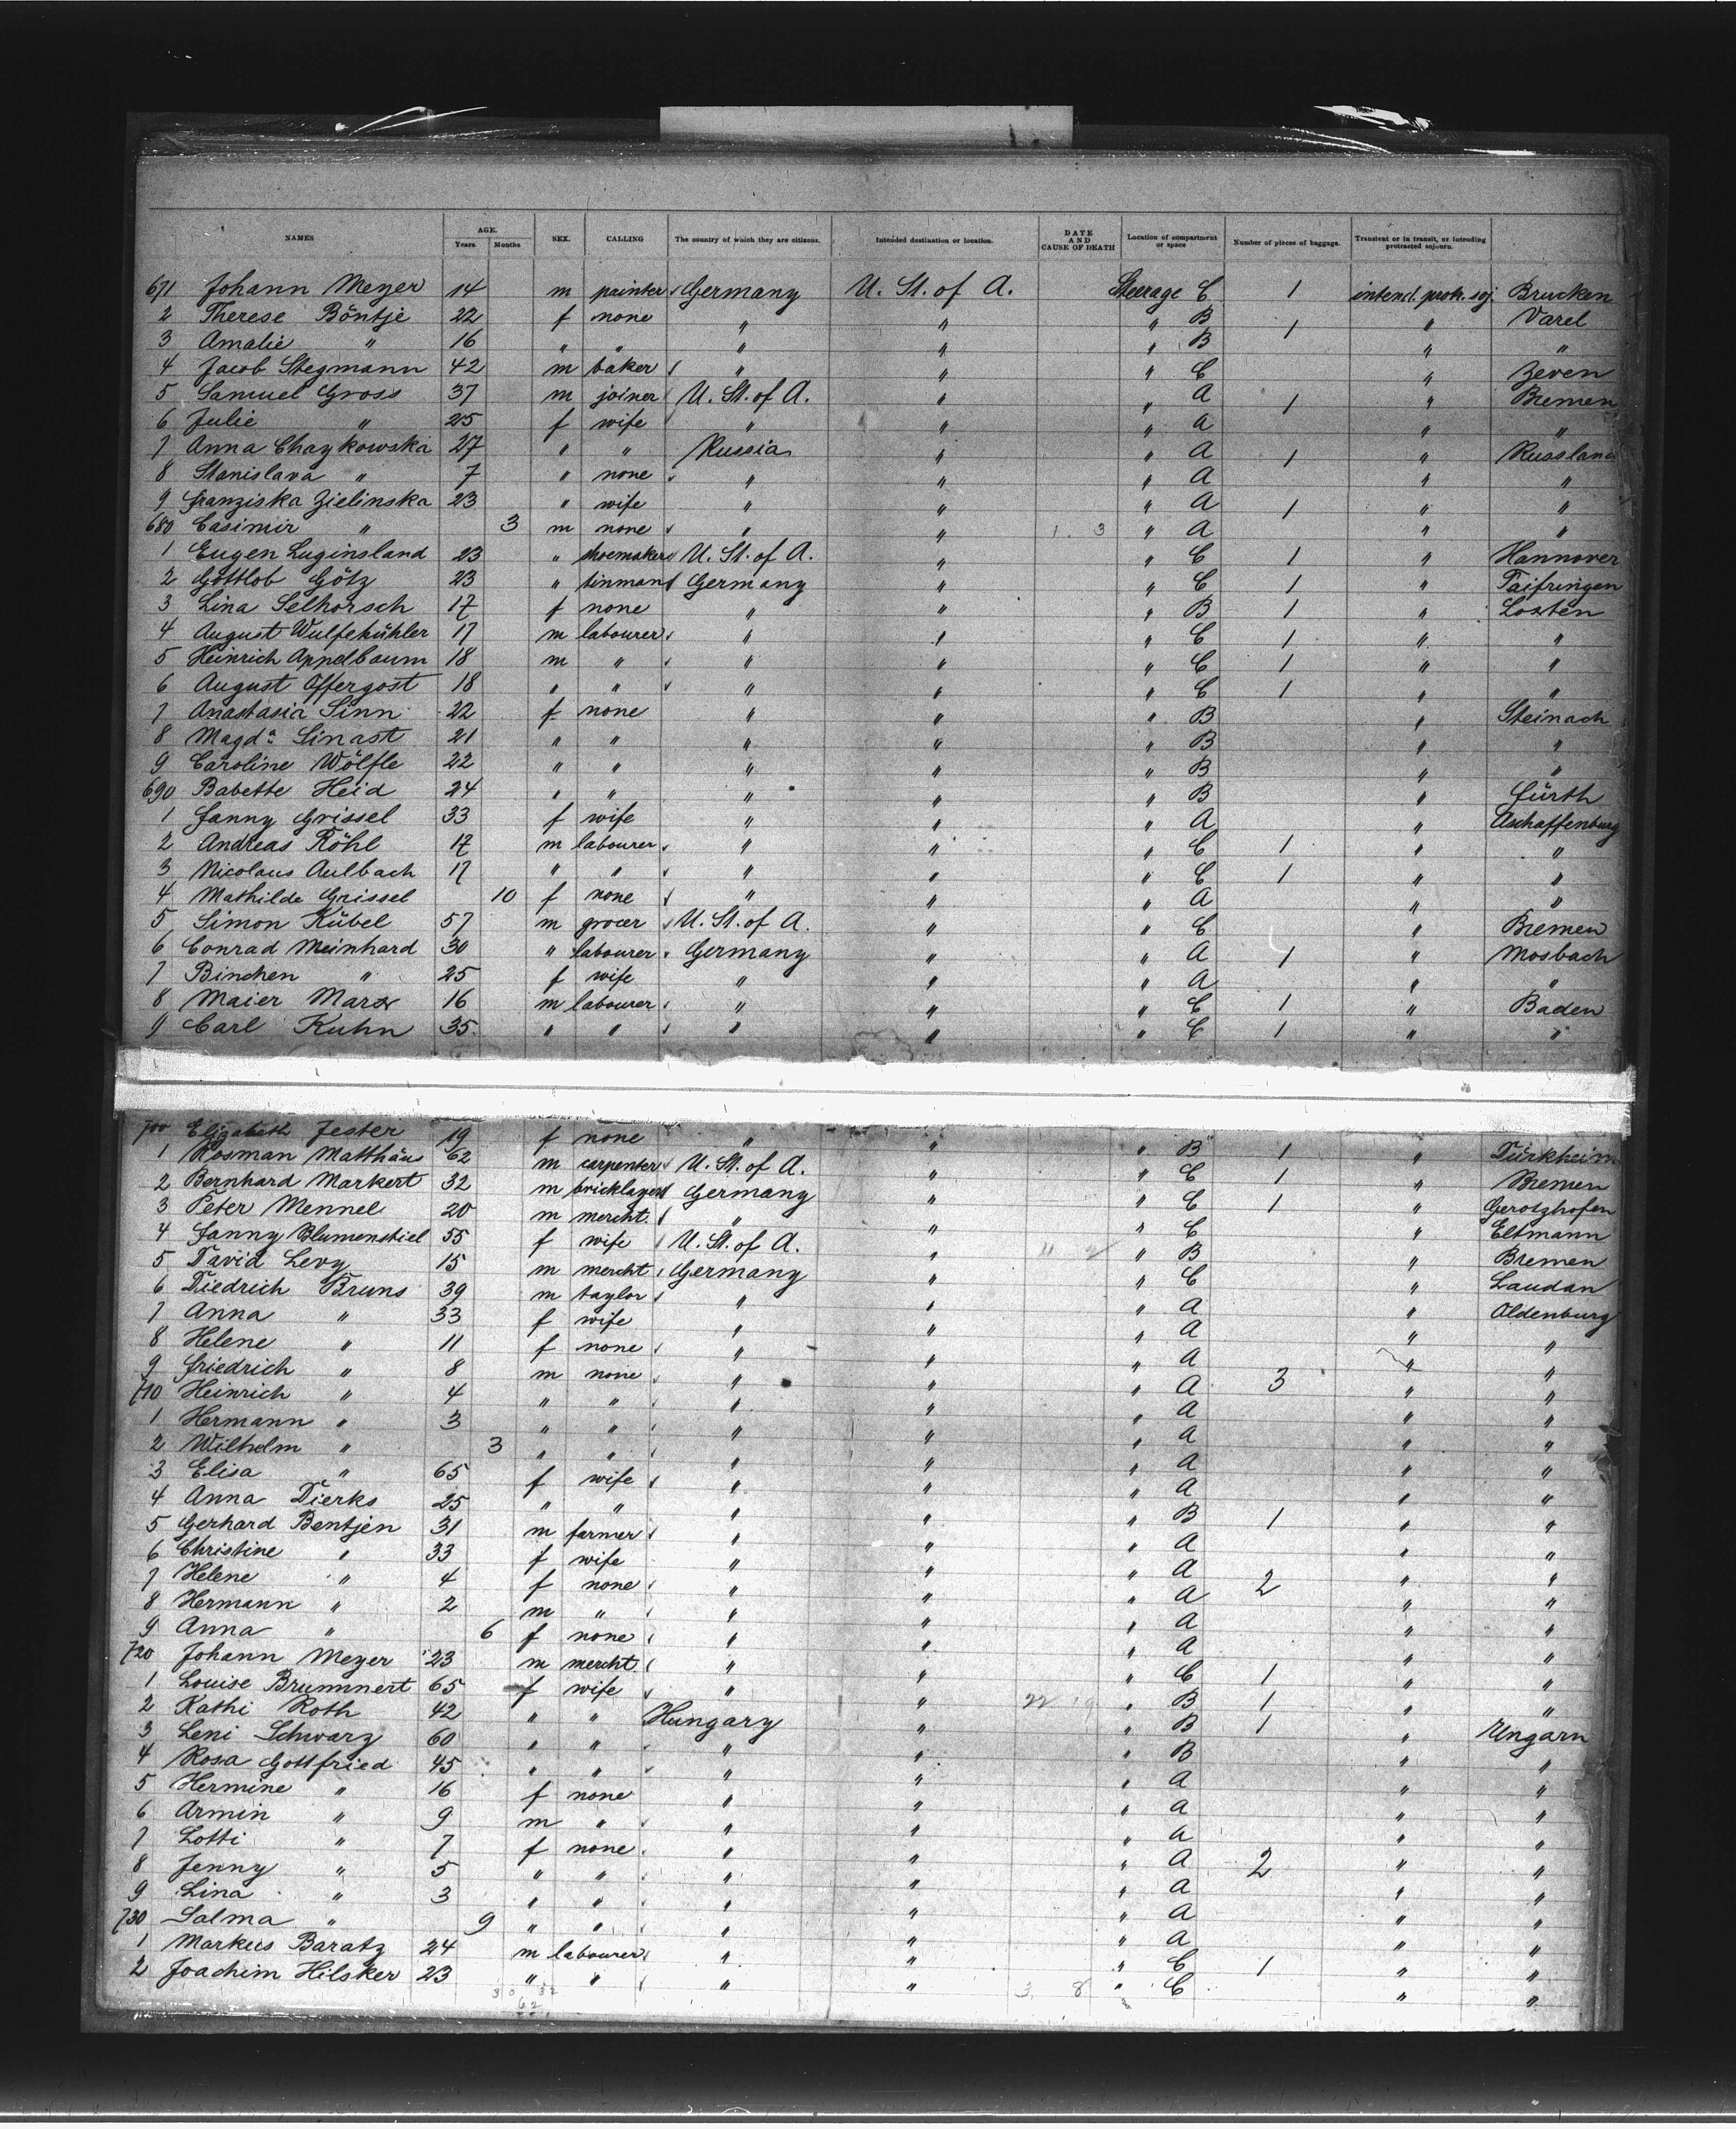 NAMES AGE. Years Months SEX. CALLING The country of which they are citizens. Intended destination or location. DATE AND CAUSE OF DEATH Location of compartment or space Number of pieces of baggage. Transient or in transit, or intending protracted sojourn.
671 Johann Meyer 14 m painter Germany U. St. of A. Steerage C 1 intend. protr. soj. Brucken
2 Therese Böntje 22 f none " " " B 1 " Varel
3 Amalie " 16 " " " " " B " "
4 Jacob Stegmann 42 m baker " " " C " Zeven
5 Samuel Gross 37 m joiner U. St. of A. " " A 1 " Bremen
6 Julie " 25 f wife " " " A " "
7 Anna Chaykowska 27 " " Russia " " A 1 " Russland
8 Stanislava " 7 " none " " " A " "
9 Franziska Zielinska 23 " wife " " " A 1 " "
680 Casimir " 3 m none " " 1 3 " A " "
1 Eugen Luginsland 23 " shoemaker U. St. of A. " " C 1 " Hannover
2 Gottlob Götz 23 " tinman Germany " " C 1 " Taifringen
3 Lina Selhorsch 17 f none " " " B 1 " Loxten
4 August Wulfekühler 17 m labourer " " " C 1 " "
5 Heinrich Appelbaum 18 m " " " " C 1 " "
6 August Offergost 18 " " " " " C 1 " "
7 Anastasia Sinn 22 f none " " " B " Steinach
8 Magda Sinast 21 " " " " " B " "
9 Caroline Wölfle 22 " " " " " B " "
690 Babette Heid 24 " " " " " B " Fürth
1 Fanny Grissel 33 f wife " " " A " Aschaffenburg
2 Andreas Röhl 17 m labourer " " " C 1 " "
3 Nicolaus Aulbach 17 " " " " " C 1 " "
4 Mathilde Grissel 10 f none " " " A " "
5 Simon Kübel 57 m grocer U. St. of A. " " C " Bremen
6 Conrad Meinhard 30 " labourer Germany " " A 1 " Mosbach
7 Binchen " 25 f wife " " " A " "
8 Maier Marx 16 m labourer " " " C 1 " Baden
9 Carl Kuhn 35 " " " " " C 1 " "
700 Elizabeth Jester 19 f none " " " B 1 " Dürkheim
1 Rosman Matthäus 62 m carpenter U. St. of A. " " C 1 " Bremen
2 Bernhard Markert 32 m bricklayer Germany " " C 1 " Gerolzhofen
3 Peter Mennel 20 m mercht. " " " C " Eltmann
4 Fanny Blumenstiel 55 f wife U. St. of A. " 11 2 " B " Bremen
5 David Levy 15 m mercht Germany " " C " Laudan
6 Diedrich Bruns 39 m taylor " " " A " Oldenburg
7 Anna " 33 f wife " " " A " "
8 Helene " 11 f none " " " A " "
9 Friedrich " 8 m none " " " A 3 " "
710 Heinrich " 4 " " " " " A " "
1 Hermann " 3 " " " " " A " "
2 Wilhelm " 3 " " " " " A " "
3 Elisa " 65 f wife " " " A " "
4 Anna Dierks 25 " " " " " B 1 " "
5 Gerhard Bentjen 31 m farmer " " " A " "
6 Christine " 33 f wife " " " A " "
7 Helene " 4 f none " " " A 2 " "
8 Hermann " 2 m " " " " A " "
9 Anna " 6 f none " " " A " "
720 Johann Meyer 23 m mercht. " " " C 1 " "
1 Louise Brummert 65 f wife " " 22 19 " B 1 " "
2 Kathi Roth 42 " " Hungary " " B 1 " Ungarn
3 Leni Schwarz 60 " " " " " B " "
4 Rosa Gottfried 45 " " " " " A " "
5 Hermine " 16 f none " " " A " "
6 Armin " 9 m " " " " A " "
7 Lotti " 7 f none " " " A 2 " "
8 Jenny " 5 " " " " " A " "
9 Lina " 3 " " " " " A " "
730 Salma " 9 " " " " " A " "
1 Markus Baratz 24 m labourer " " " C 1 " "
2 Joachim Hilsker 23 " " " " 3 8 " C " "